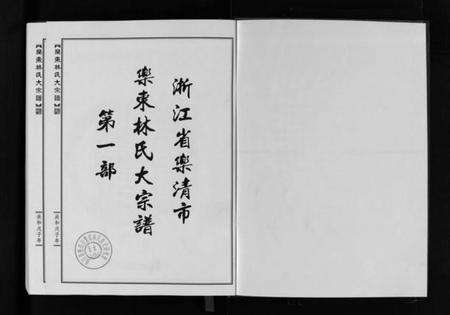 浙江省樂清市
樂東林氏大宗譜
第一部
樂東林氏大宗譜
樂東林氏大宗譜